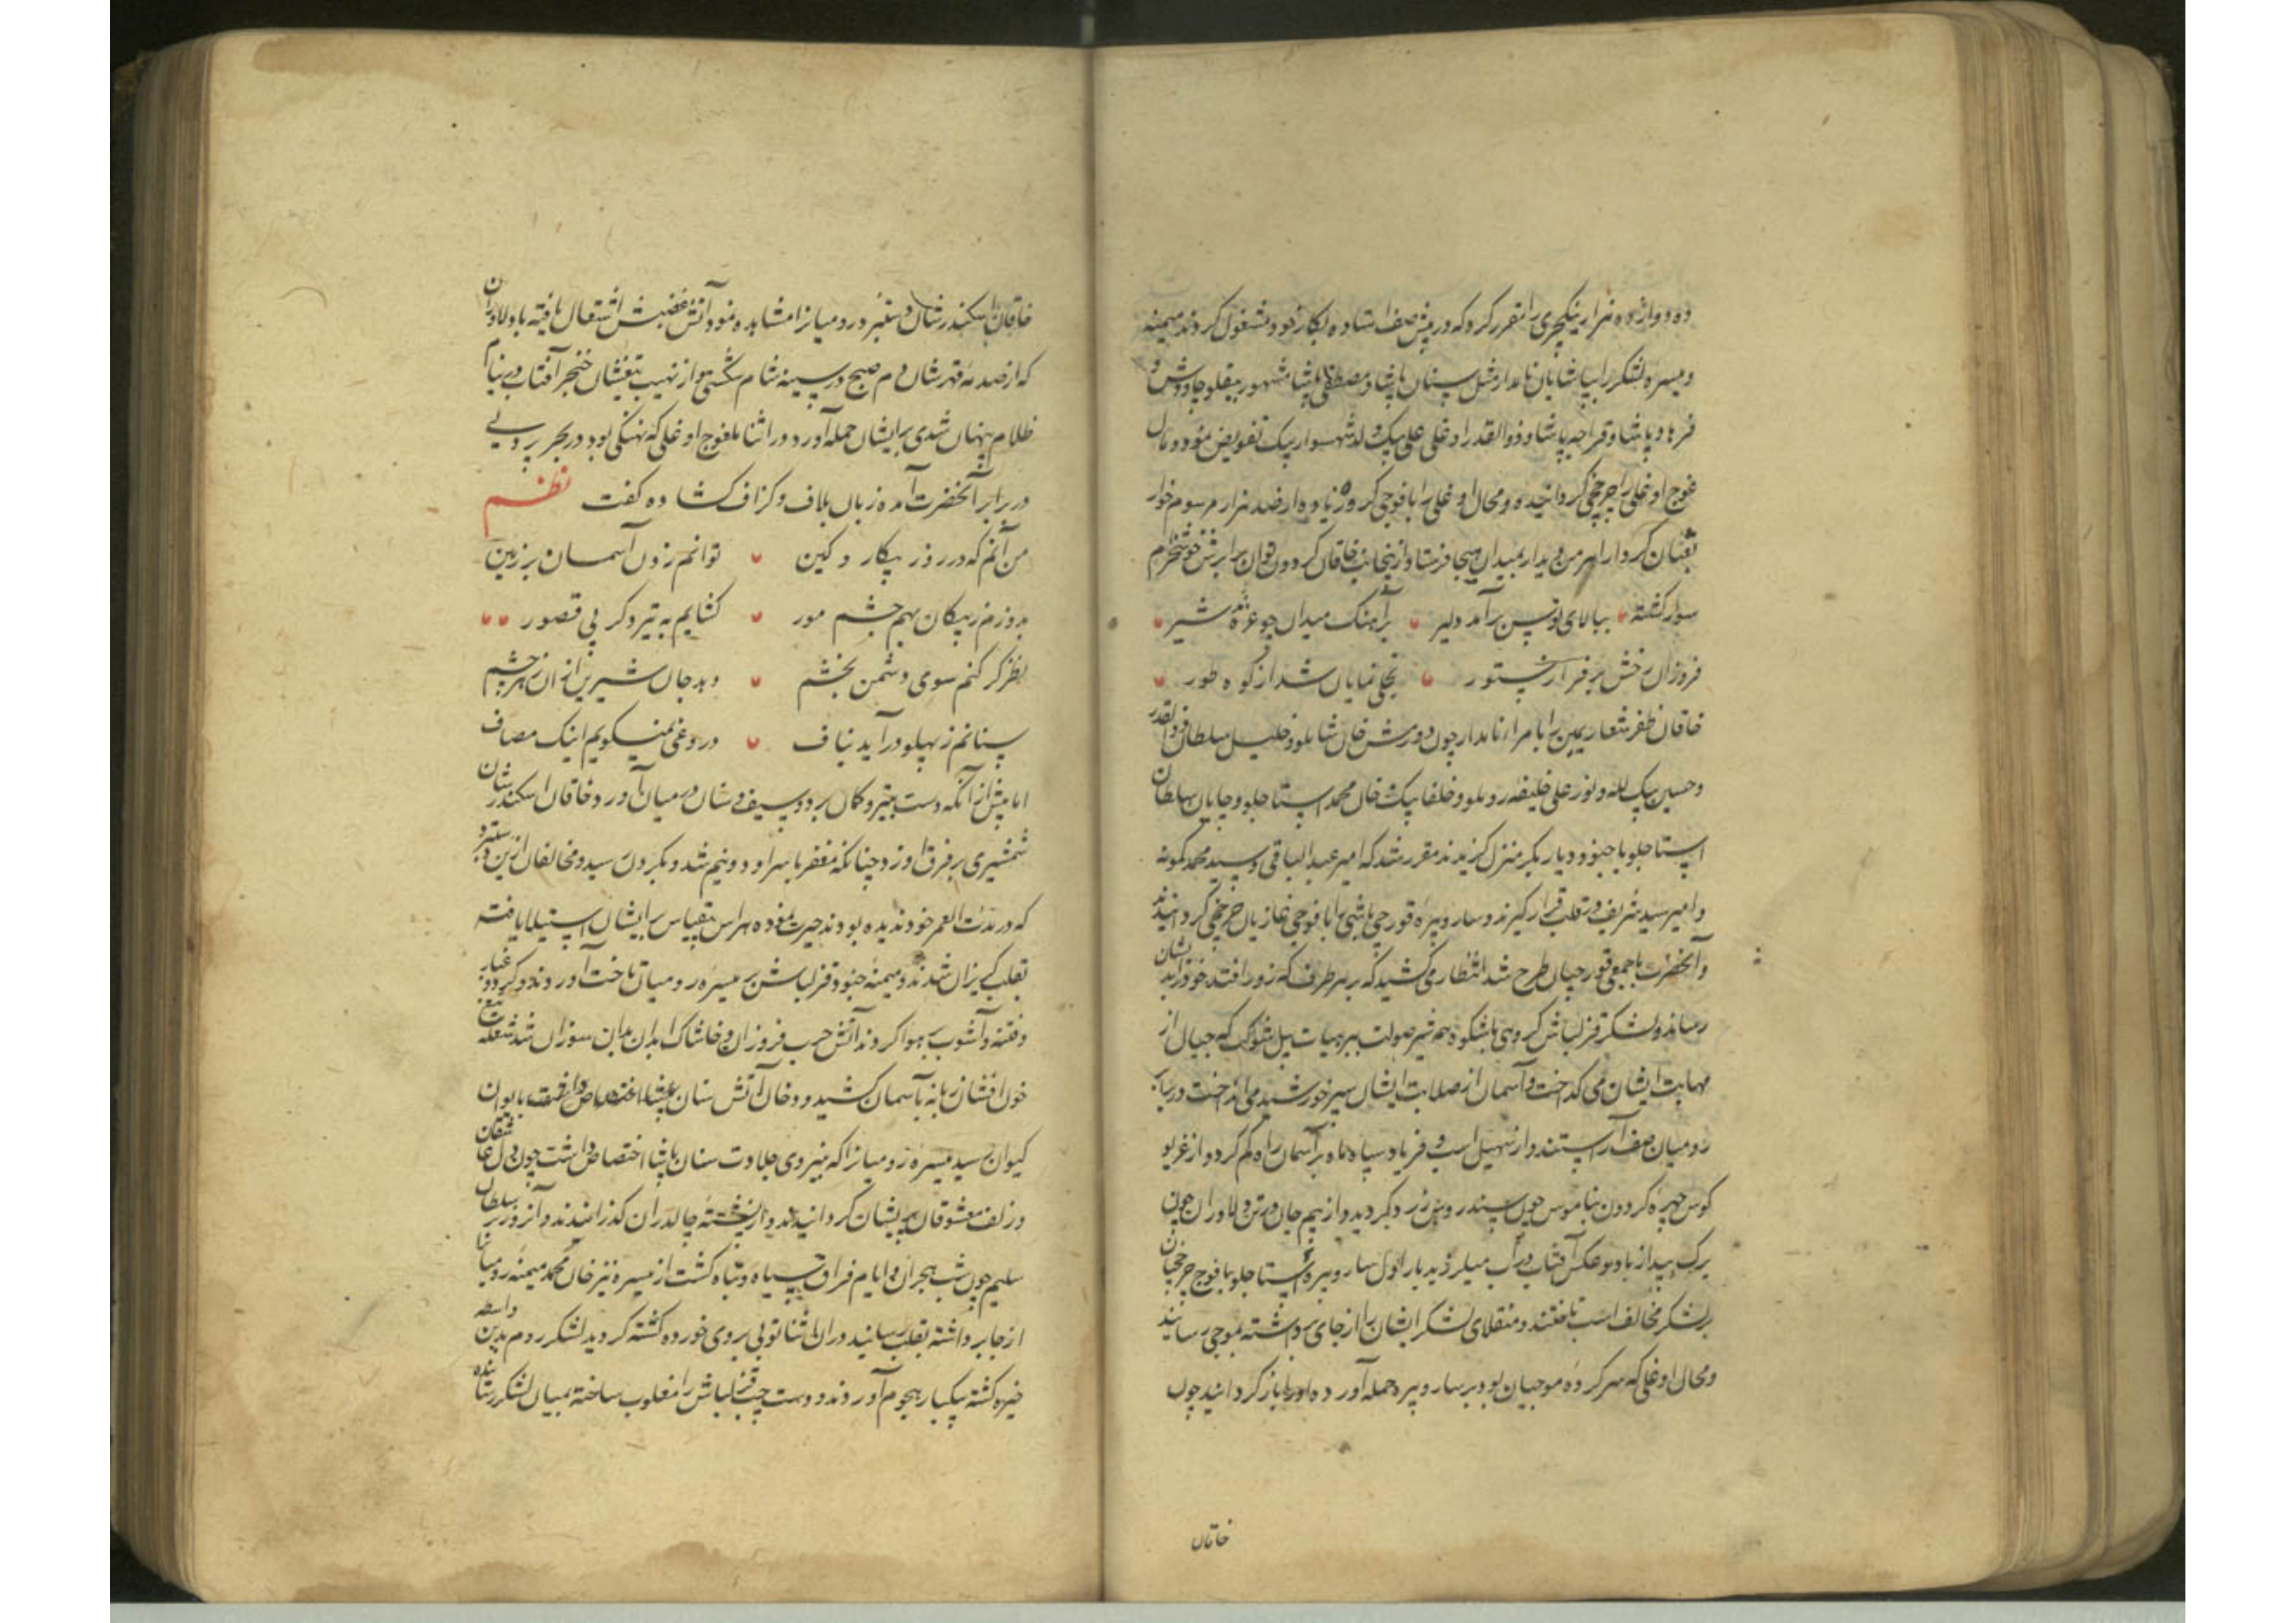 ده دوازده هزار ینکچری را مقرر کرد که در پیش صف استاده بکار خود مشغول کردند میمنه
و میسره لشکر را بپاشایان نامدار مثل سنان پاشا و مصطفی پاشا مشهور ببقلو چاوش و
فرهاد پاشا و قراجه پاشا و ذوالقدر اوغلی علی بیک ولد شهسوار بیک تفویض نمود و مال
قوج اوغلی را چرخچی کردانیده و محال اوغلی را با فوجی کروه زیاده از صد هزار مرسوم خوار
کردار اهرمن دیدار بمیدان هیجا فرستاد و ازینجانب خاقان کردون توان بر ابرش خوشخرام
سوار کشته ببالای توسن برآمد دلیر بآهنک میدان چو غرنده شیر
فروزان رخش بر فراز ستور تجلی نمایان شد از کوه طور
خاقان ظفر شعار یمین را بامراء نامدار چون دورمش خان شاملو و خلیل سلطان ذوالقدر
و حسین بیک لله و نور علی خلیفه روملو و خلفا بیک و خان محمد استاجلو و چایان سلطان
استاجلو با جنود دیار بکر منزل کزیدند مقرر شد که امیر عبد الباقی و سید محمد کمونه
و امیر سید شریف در قلب قرار کیرند و سارو پیره قورچی باشی را با فوجی غازیان چرخچی کردانیدند
و آنحضرت با جمعی قورچیان طرح شد انتظار می کشید که بر هر طرف که زور افتد خود را بدیشان
رساند و لشکر قزلباش کروهی باشکوه همه شیر صولت ببر هیات پیل شوکت که جبال از
مهابت ایشان می کداخت و آسمان از صلابت ایشان سپر خورشید می انداخت در برابر
رومیان صف آراستند و از صهیل اسب و فریاد سپاه ماه بر آسمان راه کم کرد و از غریو
کوس چهره کردون بناموس چون سپندر وش زرد کردید و از بیم جان در تن دلاوران چون
برک بید از باد و عکس آفتاب در آب میلرزید بار اول سارو پیره استاجلو با فوج چرخچیان
بر لشکر مخالف اسب تاختند و منقلای لشکر ایشان را از جای برداشته بموجی رسانیدند
و محال اوغلی که سر کرده موجیان بود بر سارو پیره حمله آورده او را باز کردانید چون
خاقان
خاقان اسکندر شان دستبرد رومیانرا مشاهده نمود آتش غضبش اشتعال یافته با دلاوران
که از صدمه قهر شان دم صبح در سینه شام شکستی و از نهیب تیغشان خنجر آفتاب در نیام
ظلام پنهان شدی بر ایشان حمله آورد در اثنا ملقوج اوغلی که نهنکی بود در بحر پر دلی
در برابر آنحضرت آمده زبان بلاف و کزاف کشاده کفت نظم
من آنم که در روز پیکار و کین توانم زدن آسمان بر زمین
بدوزم ز پیکان بهم چشم مور کشایم به تیر دکر بی قصور
نظر کر کنم سوی دشمن بخشم دهد جان شیرین از آن زهر چشم
سنانم ز پهلو درآید بناف دروغی نمیکویم اینک مصاف
اما پیش از آنکه دست بتیر و کمان برد و سیف و سنان در میان آورد خاقان اسکندر شان
شمشیری بر فرق او زد چنانکه مغفر با سر او دو نیم شد و بکردن رسید و مخالفان ازین دستبرد
که در مدت العمر خود ندیده بودند حیرت نموده هراس بیقیاس بر ایشان استیلا یافته
بقلب کریزان شدند و میمنه جنود قزلباش بر میسره رومیان تاخت آوردند و کرد و غبار
و فتنه و آشوب بر هوا کردند آتش حرب فروزان و خاشاک ابدان بدان سوزان شد شعله تیغ
خون افشان زبانه بآسمان کشید و دخان آتش سنان بایوان
کیوان رسید میسره رومیانرا که بنیروی جلادت سنان پاشا اختصاص داشت چون دل عاشقان
و زلف معشوقان پریشان کردانیدند و از پشته چالدران کذرانیدند و آنروز بر سلطان
سلیم چون شب هجران و ایام فراق سیاه و تباه کشت از میسره نیز خان محمد میمنه رومیانرا
از جا برداشته بقلب رسانید در آن اثنا توپی بر وی خورده کشته کردید لشکر روم بدین واسطه
خیره کشته بیکبار هجوم آوردند و دست چپ قزلباش را مغلوب ساخته بمیان لشکر رسانیده